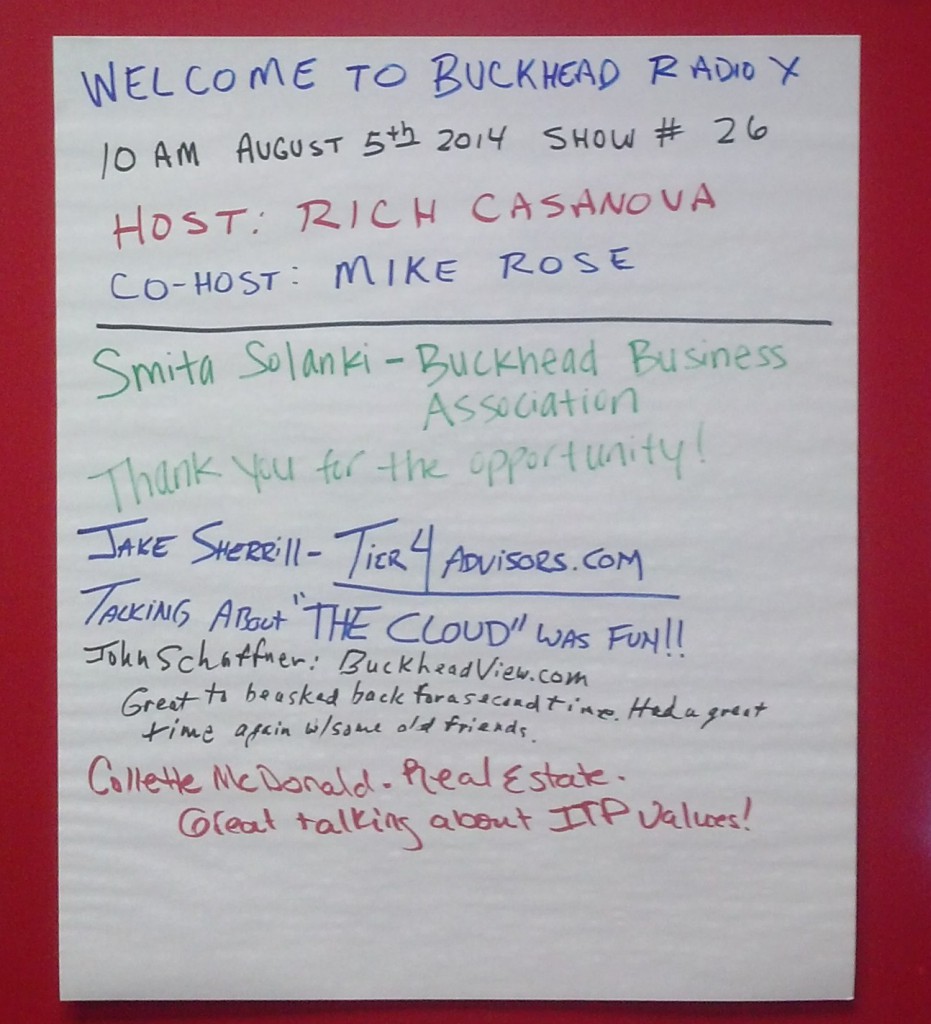 WELCOME TO BUCKHEAD RADIO X
10 AM AUGUST 5th 2014 SHOW # 26
HOST: RICH CASANOVA
CO-HOST: MIKE ROSE
Smita Solanki - Buckhead Business
Association
Thank you for the opportunity!
JAKE SHERRIll - TIER4 ADVISORS.COM
TALKING ABOUT "THE CLOUD" WAS FUN!!
John Schaffner: BuckheadView.com
Great to be asked back for a second time. Had a great
time again w/some old friends.
Collette McDonald - Real Estate.
Great talking about ITP Values!